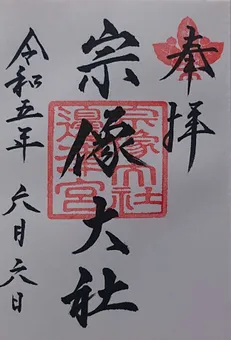 奉拝
宗像大社
宗像大社
邊津宮
令和五年 六月六日